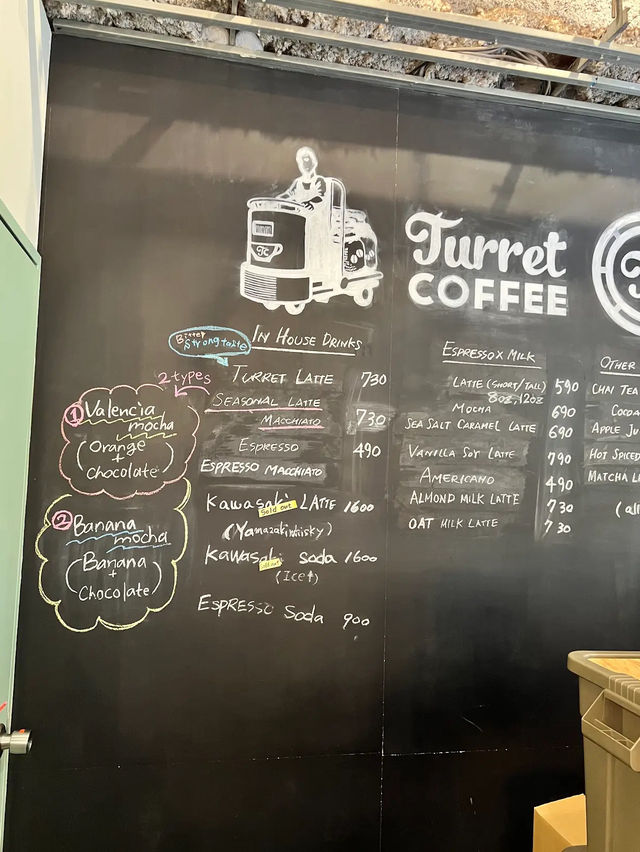 Turret
COFFEE
TC
Bitter
Strong taste
IN HOUSE DRINKS
2 types
TURRET LATTE 730
SEASONAL LATTE
MACCHIATO 730
ESPRESSO 490
ESPRESSO MACCHIATO
Kawasaki LATTE 1600
Sold out
(Yamazaki whisky)
Kawasaki soda 1600
(Icet)
ESPRESSO Soda 900
① Valencia
mocha
(Orange
+
chocolate)
② Banana
mocha
(Banana
+
Chocolate)
ESPRESSO X MILK
LATTE (SHORT/TALL) 590
8oz, 12oz
MOCHA 690
SEA SALT CARAMEL LATTE 690
VANILLA SOY LATTE 790
AMERICANO 490
ALMOND MILK LATTE 730
OAT MILK LATTE 730
OTHER
CHAI TEA
COCOA
APPLE JU
HOT SPICED
MATCHA L
(all